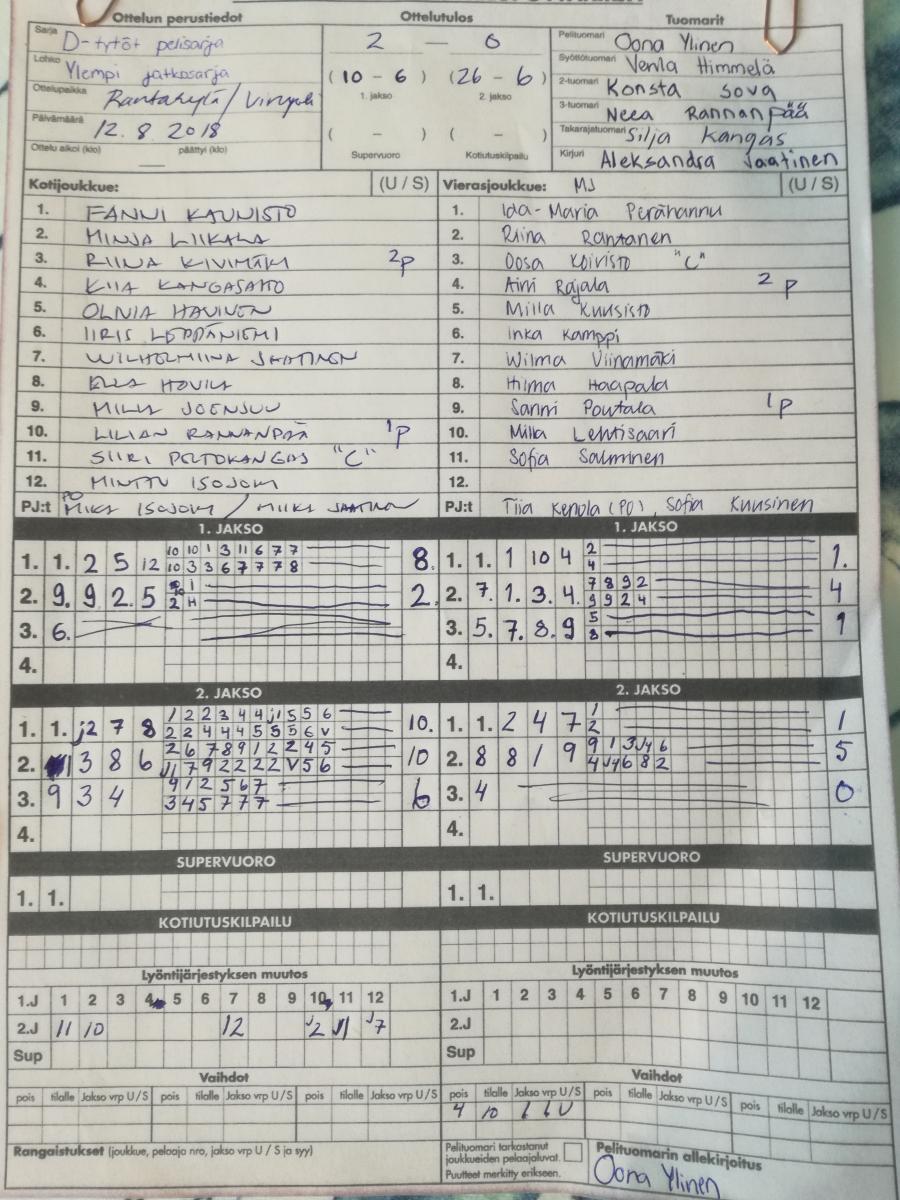 Ottelun perustiedot
Ottelutulos
Tuomarit
Sarja D-tytöt pelisarja
Lohko Ylempi jatkosarja
Ottelupaikka Rantakylä /
Päivämäärä 12.8 2018
Ottelu alkoi (klo) päättyi (klo)
2 — 0
(10 - 6) (26 - 6)
1. jakso 2. jakso
( - ) ( - )
Supervuoro Kotiutuskilpailu
Pelituomari Oona Ylinen
Syöttötuomari Venla Himmelä
2-tuomari Konsta Sova
3-tuomari Neea Rannanpää
Takarajatuomari Silja Kangas
Kirjuri Aleksandra Jaatinen
Kotijoukkue: (U / S)
1. FANNI KAUNISTO
2. MINJA LIIKALA
3. RIINA KIVIMÄKI 2p
4. KIIA KANGASAHO
5. OLIVIA HAVINEN
6. IIRIS LEPPÄNIEMI
7. WILHELMIINA JAATINEN
8. ELLA HOVILA
9. MILLA JOENSUU
10. LILIAN RANNANPÄÄ 1p
11. SIIRI PELTOKANGAS "C"
12. MINTTU ISOJOKI
PJ:t PO MIKA ISOJOKI / MIIKA JAATINEN
Vierasjoukkue: MJ (U / S)
1. Ida-Maria Perähannu
2. Riina Rantanen
3. Oosa Koivisto "C"
4. Aini Rajala 2 p
5. Milla Kuusisto
6. Inka Kamppi
7. Wilma Viinamäki
8. Hilma Haapala
9. Sanni Poutala 1p
10. Milla Lehtisaari
11. Sofia Salminen
12.
PJ:t Tiia Kenola (PO), Sofia Kuusinen
1. JAKSO
1. 1. 2 5 12 10 10 1 3 11 6 7 7 8.
10 3 3 6 7 7 7 8
2. 9. 9 2. 5 1 2.
2 H
3. 6.
4.
1. JAKSO
1. 1. 1 10 4 2 1.
4
2. 7. 1. 3. 4. 7 8 9 2 4
9 9 2 4
3. 5. 7. 8. 9 5 1
8
4.
2. JAKSO
1. 1. j2 7 8 1 2 2 3 4 4 j1 5 5 6 10.
2 2 4 4 4 5 5 5 6 V
2. 1 3 8 6 2 6 7 8 9 1 2 2 4 5 10
J1 7 9 2 2 2 2 V 5 6
3. 9 3 4 9 1 2 5 6 7 6
3 4 5 7 7 7
4.
2. JAKSO
1. 1. 2 4 7 1 1
2
2. 8 8 1 9 9 1 3 J4 6 5
4 J4 6 8 2
3. 4 0
4.
SUPERVUORO
1. 1.
SUPERVUORO
1. 1.
KOTIUTUSKILPAILU
KOTIUTUSKILPAILU
Lyöntijärjestyksen muutos
1.J 1 2 3 4 5 6 7 8 9 10 11 12
2.J 11 10 12 j2 J1 J7
Sup
Lyöntijärjestyksen muutos
1.J 1 2 3 4 5 6 7 8 9 10 11 12
2.J
Sup
Vaihdot
pois tilalle Jakso vrp U / S pois tilalle Jakso vrp U / S pois tilalle Jakso vrp U / S
Vaihdot
pois tilalle Jakso vrp U / S pois tilalle Jakso vrp U / S pois tilalle Jakso vrp U / S
4 10 1 1 U
Rangaistukset (joukkue, pelaaja nro, jakso vrp U / S ja syy)
Pelituomari tarkastanut
joukkueiden pelaajaluvat.
Puutteet merkitty erikseen.
Pelituomarin allekirjoitus
Oona Ylinen